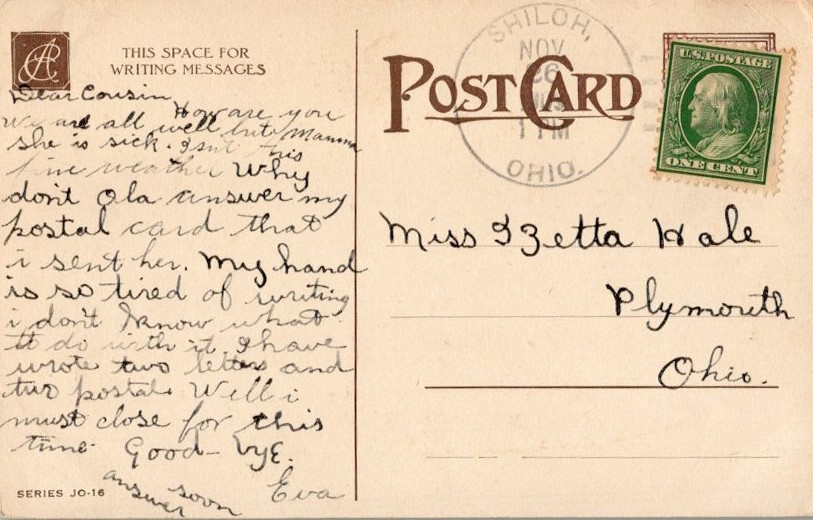 THIS SPACE FOR
WRITING MESSAGES
Dear Cousin
How are you
We are all well but Mamma
she is sick. Isnt this
fine weather Why
don't Ola answer my
postal card that
i sent her. My hand
is so tired of writing
i don't know what
to do with it. I have
wrote two letters and
two postals Well i
must close for this
time. Good-bye.
Eva
answer soon
SERIES JO-16
POST CARD
SHILOH,
NOV
26
1 PM
OHIO.
U.S. POSTAGE
ONE CENT
Miss Izetta Hale
Plymouth
Ohio.